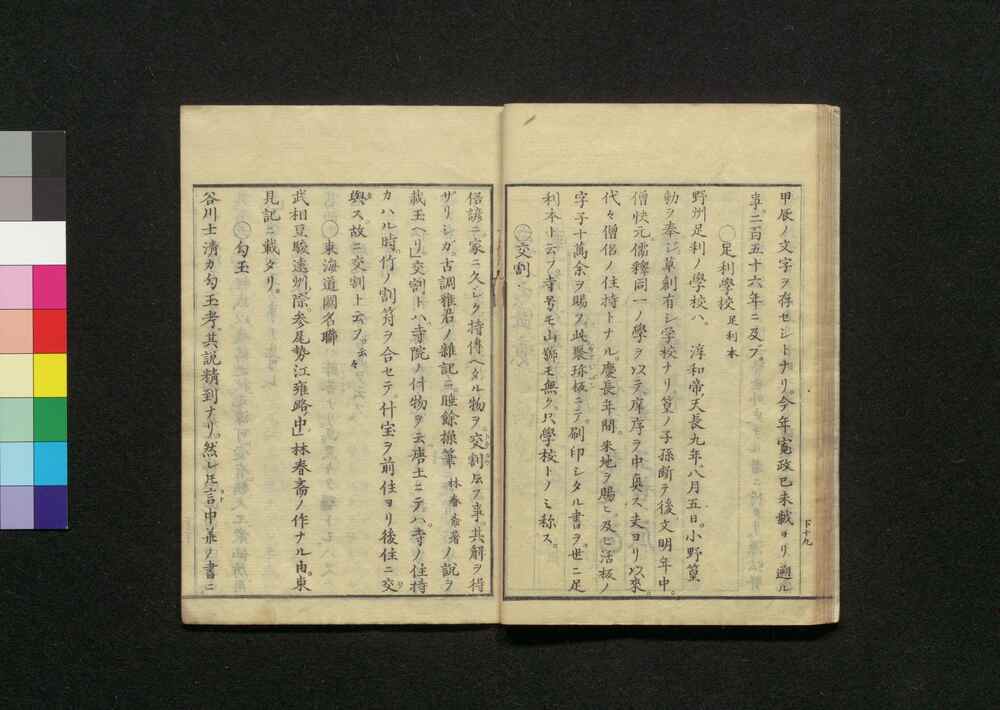 甲辰ノ文字ヲ存セシトナリ。今年寛政己未載ヨリ遡ル
事。二百五十六年ニ及フ。
足利學校 足利本
野州足利ノ學校ハ 淳和帝、天長九年、八月五日。小野篁
勅ヲ奉シ、草創有シ学校ナリ。篁ノ子孫断テ後、文明年中。
僧快元儒釋同一ノ學ヲ以テ、庠序ヲ中興ス。夫ヨリ以來。
代々僧侶ノ住持トナル。慶長年間。釆地ヲ賜ヒ、及ヒ活板ノ
字子十萬余ヲ賜フ。此聚珍板ニテ、刷印シタル書ヲ。世ニ足
利本ト云フ。寺号モ山號モ無ク。只學校トノミ称ス。
交割
俗諺ニ、家ニ久シク持傳ヘタル物ヲ。交割ト云フ事。其解ヲ得
ザリシガ。古調雅君ノ雜記ニ。睡餘操筆 林春斎著ノ説ヲ
載玉ヘリ。交割トハ、寺院ノ付物ヲ云。唐土ニテハ、寺ノ住持
カハル時。竹ノ割符ヲ合セテ。什宝ヲ前住ヨリ後住ニ交
與ス。故ニ交割ト云フ。云々
東海道國名聯
武相豆駿遠州際。参尾勢江雍路中。林春斎ノ作ナル由。東
見記ニ載タリ。
勾玉
谷川士清カ勾玉考。其説精到ナリ。然レ𪜈言中。兼ノ書ニ
下十九